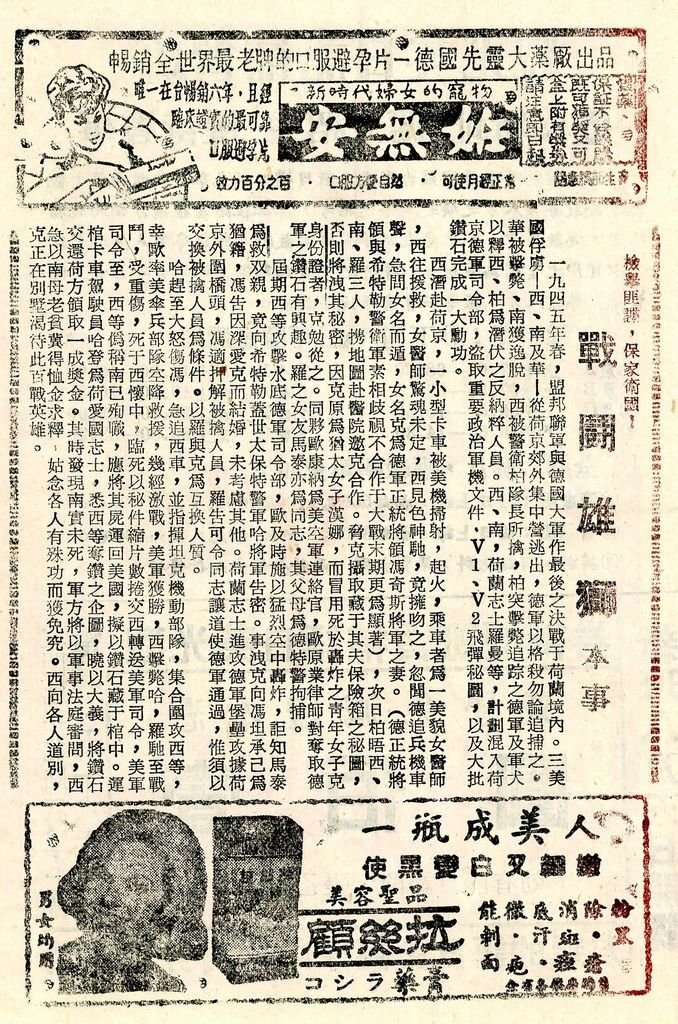 暢銷全世界最老牌的口服避孕片—德國先靈大藥廠出品
唯一在台暢銷六年，且經
臨床證實的最可靠
口服避孕片
新時代婦女的寵物
安無妊
效力百分之百 · 口服方便自然 · 可使月經正常
檢舉匪諜，保家衛國！
戰鬪雄獅 本事
一九四五年春，盟邦聯軍與德國大軍作最後之決戰于荷蘭境內。三美
國俘虜—西、南及華—從荷京郊外集中營逃出，德軍以格殺勿論追捕之。
華被擊斃、南獲逸脫，西被警衛柏隊長所擒，柏突擊斃追踪之德軍及軍犬
以釋西、柏爲潛伏之反納粹人員。西、南，荷蘭志士羅曼等，計劃混入荷
京德軍司令部，盜取重要政治軍機文件，V1、V2飛彈秘圖，以及大批
鑽石完成一大動功。
西潛赴荷京，一小型卡車被美機掃射，起火，乘車者爲一美貌女醫師
，西往援救，女醫師驚魂未定，西見色神馳，竟擁吻之，忽聞德追兵機車
聲，急問女名而遁，女名克爲德軍正統將領馮奇斯將軍之妻。（德正統將
領與希特勒警衛軍素相歧視不合作于大戰末期更爲顯著），次日柏晤西、
南、羅三人，携地圖赴醫院邀克合作。脅克攝取藏于其夫保險箱之秘圖，
否則將洩其秘密，因克原爲猶太女子漢娜，而冒用死於轟炸之青年女子克
身份證者，克勉從之。同夥歐康納爲美空軍連絡官，歐原業律師對奪取德
軍之鑽石有興趣。羅之女友馬泰亦爲同志，其父母爲德特警拘捕。
屆期西等攻擊水底德軍司令部，歐及時施以猛烈空中轟炸，詎知馬泰
爲救双親，竟向希特勒蓋世太保特警軍哈將軍告密。事洩克向馮坦承己爲
猶籍，馮告因深愛克而結婚，未考慮其他。荷蘭志士進攻德軍堡壘攻據荷
京外圍橋頭，馮適押解被擒人員，羅告可令同志讓道使德軍通過，惟須以
交換被擒人員爲條件。以羅與克爲互換人質。
哈趕至大怒傷馮，急追西車，並指揮坦克機動部隊，集合圍攻西等，
幸歐率美傘兵部隊空降救援，幾經激戰，美軍獲勝，西擊斃哈，羅馳至戰
鬥，受重傷，死于西懷中，臨死以秘件縮片數捲交西轉送美軍司令，美軍
司令至，西等僞稱南已殉職，應將其屍運回美國，擬以鑽石藏于棺中。運
棺卡車駕駛員哈登爲荷愛國志士，悉西等奪鑽之企圖，曉以大義，將鑽石
交還荷方領取一成獎金。其時發現南實未死，軍方將以軍事法庭審問，西
急以南母老貧冀得恤金求釋。姑念各人有殊功而獲免究。西向各人道別，
克正在別墅渴待此百戰英雄。
一瓶成美人
使黑變白又細嫩
美容聖品
顧絲拉
コシラ藥膏
男女幼用